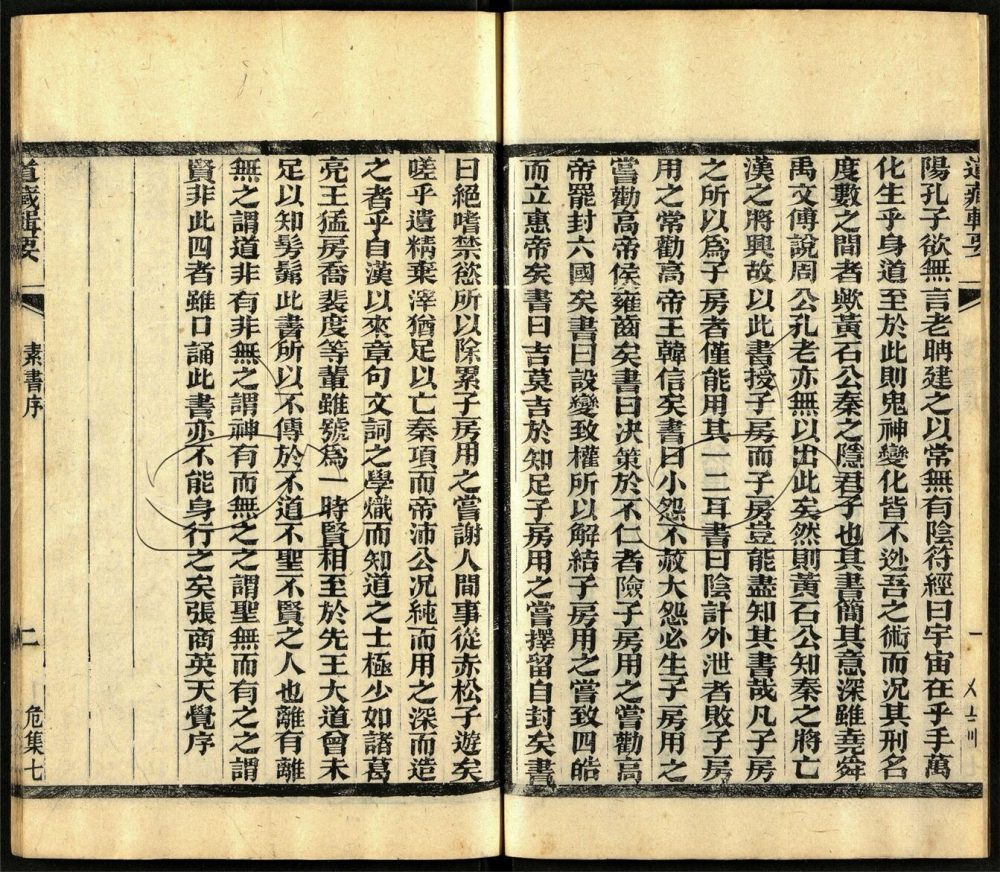 道藏輯要
一
陽孔子欲無言老聃建之以常無有陰符經曰宇宙在乎手萬
化生乎身道至於此則鬼神變化皆不逃吾之術而況其刑名
度數之間者歟黃石公秦之隱君子也其書簡其意深雖堯舜
禹文傅說周公孔老亦無以出此矣然則黃石公知秦之將亡
漢之將興故以此書授子房而子房豈能盡知其書哉凡子房
之所以為子房者僅能用其一二耳書曰陰計外泄者敗子房
用之常勸高帝王韓信矣書曰小怨不赦大怨必生子房用之
嘗勸高帝侯雍齒矣書曰決策於不仁者險子房用之嘗勸高
帝罷封六國矣書曰設變致權所以解結子房用之嘗致四皓
而立惠帝矣書曰吉莫吉於知足子房用之嘗擇留自封矣書
曰絕嗜禁慾所以除累子房用之嘗謝人間事從赤松子遊矣
嗟乎遺精棄滓猶足以亡秦項而帝沛公況純而用之深而造
之者乎自漢以來章句文詞之學熾而知道之士極少如諸葛
亮王猛房喬裴度等輩雖號為一時賢相至於先王大道曾未
足以知髣髴此書所以不傳於不道不聖不賢之人也離有離
無之謂道非有非無之謂神有而無之之謂聖無而有之之謂
賢非此四者雖口誦此書亦不能身行之矣張商英天覺序
道藏輯要
素書序
二
危集七